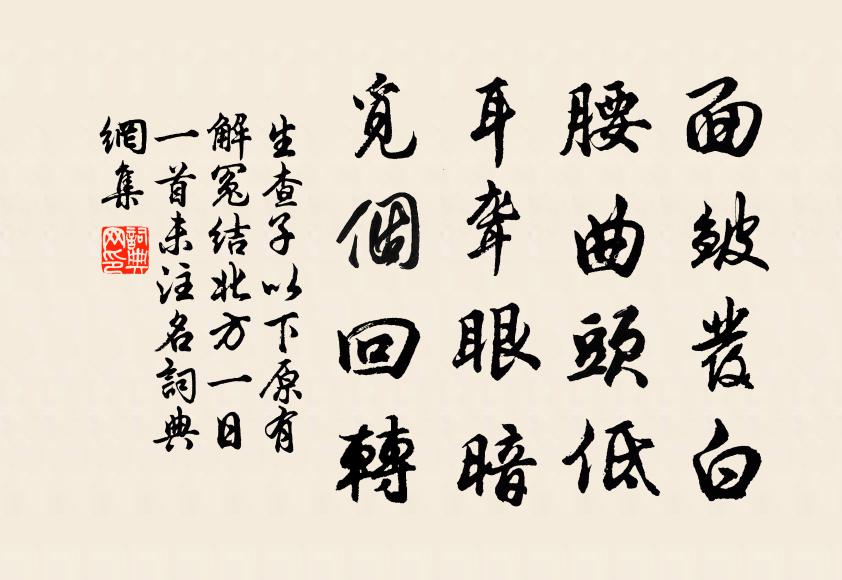 面皴發白
腰曲頭低
耳聾眼暗
覓個回轉
生查子以下原有
解冤結北方一日
一首未注名詞典
網集
詞典網印